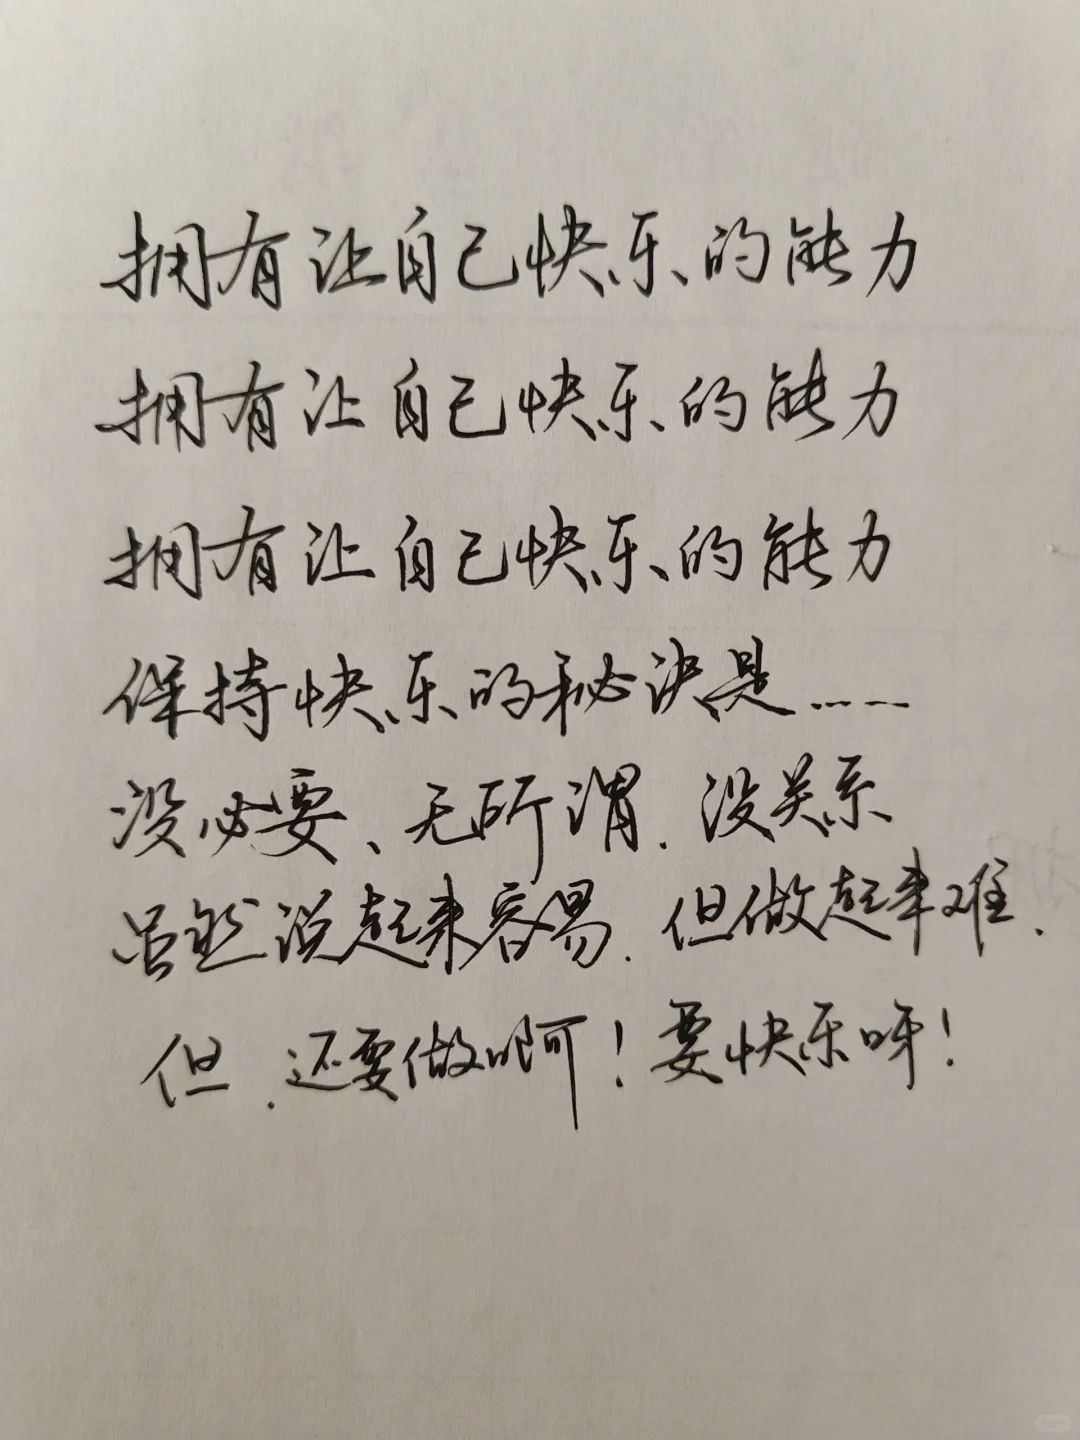 拥有让自己快乐的能力
拥有让自己快乐的能力
拥有让自己快乐的能力
保持快乐的秘决是……
没必要、无所谓.没关系
虽然说起来容易.但做起来难.
但.还要做啊！要快乐呀！